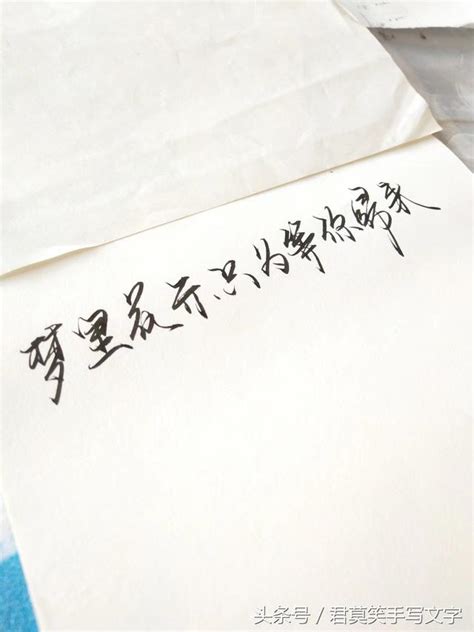 梦里花开,只为等你归来
头条号/君莫笑手写文字